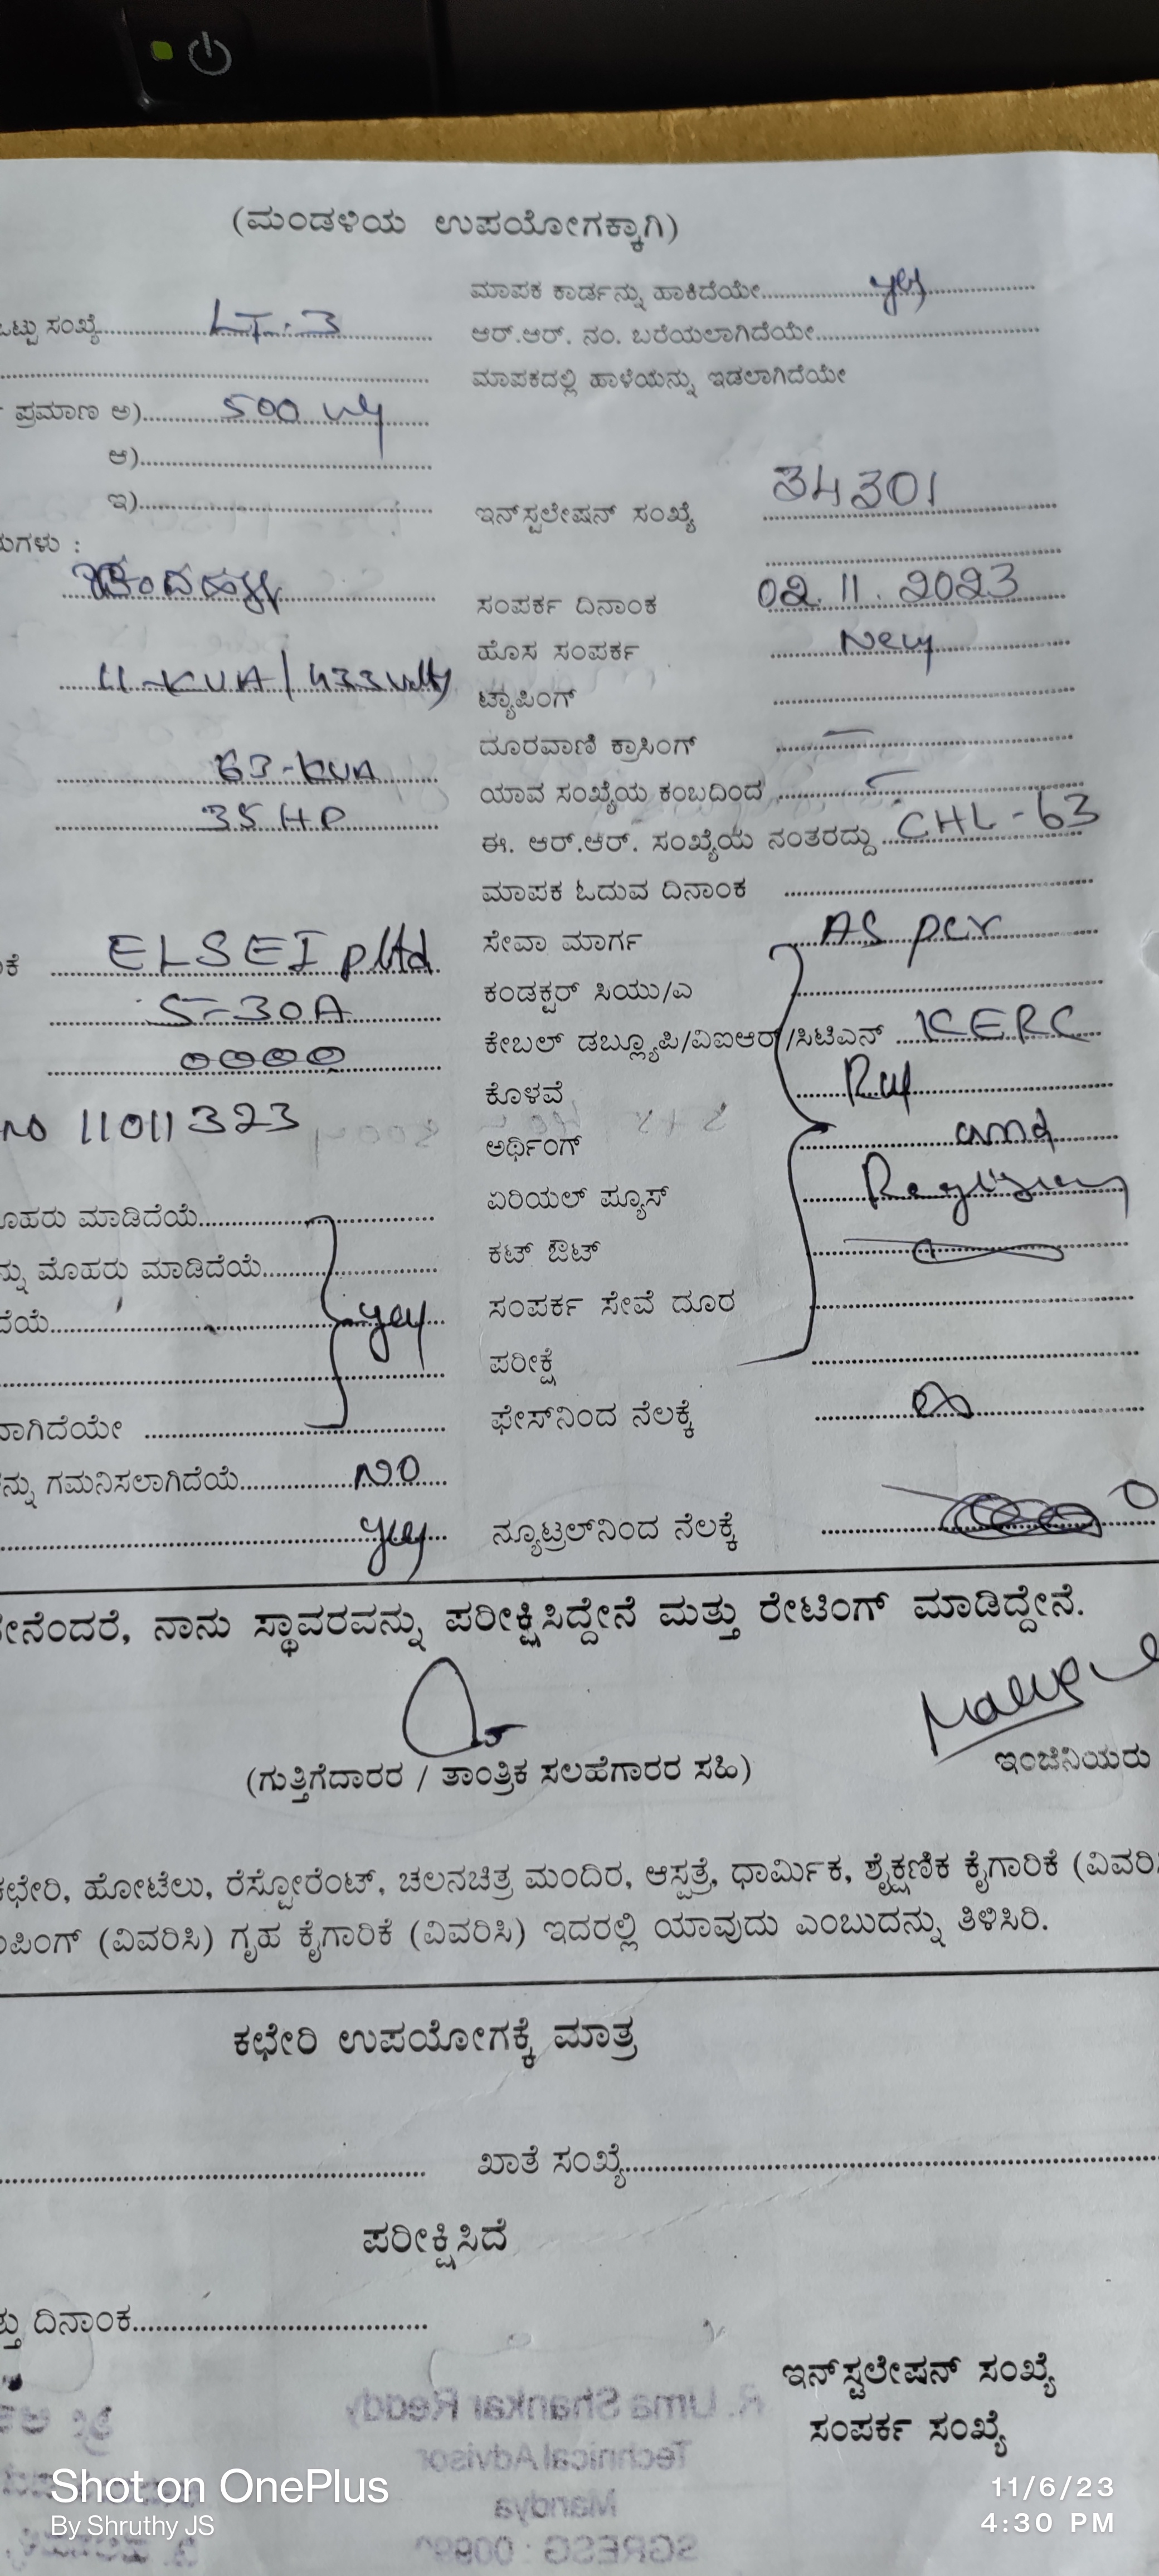 (ಮಂಡಳಿಯ ಉಪಯೋಗಕ್ಕಾಗಿ)
ಮಾಪಕ ಕಾರ್ಡನ್ನು ಹಾಕಿದೆಯೇ
ಒಟ್ಟು ಸಂಖ್ಯೆ LT-3
ಆರ್.ಆರ್. ನಂ. ಬರೆಯಲಾಗಿದೆಯೇ
ಮಾಪಕದಲ್ಲಿ ಹಾಳೆಯನ್ನು ಇಡಲಾಗಿದೆಯೇ
ಪ್ರಮಾಣ ಅ) 500
ಆ)
ಇ)
ಇನ್‌ಸ್ಟಲೇಷನ್ ಸಂಖ್ಯೆ 34301
ಗಳು :
ಸಂಪರ್ಕ ದಿನಾಂಕ 02.11.2023
ಹೊಸ ಸಂಪರ್ಕ New
11-KVA/433
ಟ್ಯಾಪಿಂಗ್
ದೂರವಾಣಿ ಕ್ರಾಸಿಂಗ್
63-KVA
ಯಾವ ಸಂಖ್ಯೆಯ ಕಂಬದಿಂದ
35 HP
ಈ. ಆರ್.ಆರ್. ಸಂಖ್ಯೆಯ ನಂತರದ್ದು CHL-63
ಮಾಪಕ ಓದುವ ದಿನಾಂಕ
ಕೆ ELSEI pltd
ಸೇವಾ ಮಾರ್ಗ As per
5-30A
ಕಂಡಕ್ಟರ್ ಸಿಯು/ಎ
0000
ಕೇಬಲ್ ಡಬ್ಲ್ಯೂಪಿ/ವಿಐಆರ್/ಸಿಟಿಎನ್ KERC
ಕೊಳವೆ
no 11011323
ಅರ್ಥಿಂಗ್ and
ಏರಿಯಲ್ ಪ್ಯೂಸ್
ಮೊಹರು ಮಾಡಿದೆಯೆ
ಕಟ್ ಔಟ್
ನ್ನು ಮೊಹರು ಮಾಡಿದೆಯೆ
ಸಂಪರ್ಕ ಸೇವೆ ದೂರ
ದೆಯೆ yes
ಪರೀಕ್ಷೆ
ಫೇಸ್‌ನಿಂದ ನೆಲಕ್ಕೆ
ವಾಗಿದೆಯೇ
ನ್ನು ಗಮನಿಸಲಾಗಿದೆಯೆ NO
ನ್ಯೂಟ್ರಲ್‌ನಿಂದ ನೆಲಕ್ಕೆ
yes
ನೇನೆಂದರೆ, ನಾನು ಸ್ಥಾವರವನ್ನು ಪರೀಕ್ಷಿಸಿದ್ದೇನೆ ಮತ್ತು ರೇಟಿಂಗ್ ಮಾಡಿದ್ದೇನೆ.
(ಗುತ್ತಿಗೆದಾರರ / ತಾಂತ್ರಿಕ ಸಲಹೆಗಾರರ ಸಹಿ)
ಇಂಜಿನಿಯರು
ಕಛೇರಿ, ಹೋಟೆಲು, ರೆಸ್ಟೋರೆಂಟ್, ಚಲನಚಿತ್ರ ಮಂದಿರ, ಆಸ್ಪತ್ರೆ, ಧಾರ್ಮಿಕ, ಶೈಕ್ಷಣಿಕ ಕೈಗಾರಿಕೆ (ವಿವರಿ
ಪಿಂಗ್ (ವಿವರಿಸಿ) ಗೃಹ ಕೈಗಾರಿಕೆ (ವಿವರಿಸಿ) ಇದರಲ್ಲಿ ಯಾವುದು ಎಂಬುದನ್ನು ತಿಳಿಸಿರಿ.
ಕಛೇರಿ ಉಪಯೋಗಕ್ಕೆ ಮಾತ್ರ
ಖಾತೆ ಸಂಖ್ಯೆ
ಪರೀಕ್ಷಿಸಿದೆ
ತ್ತು ದಿನಾಂಕ
ಇನ್‌ಸ್ಟಲೇಷನ್ ಸಂಖ್ಯೆ
R. Uma Shankar Reddy
ಸಂಪರ್ಕ ಸಂಖ್ಯೆ
Technical Advisor
Mandya
Shot on OnePlus
By Shruthy JS
11/6/23
4:30 PM